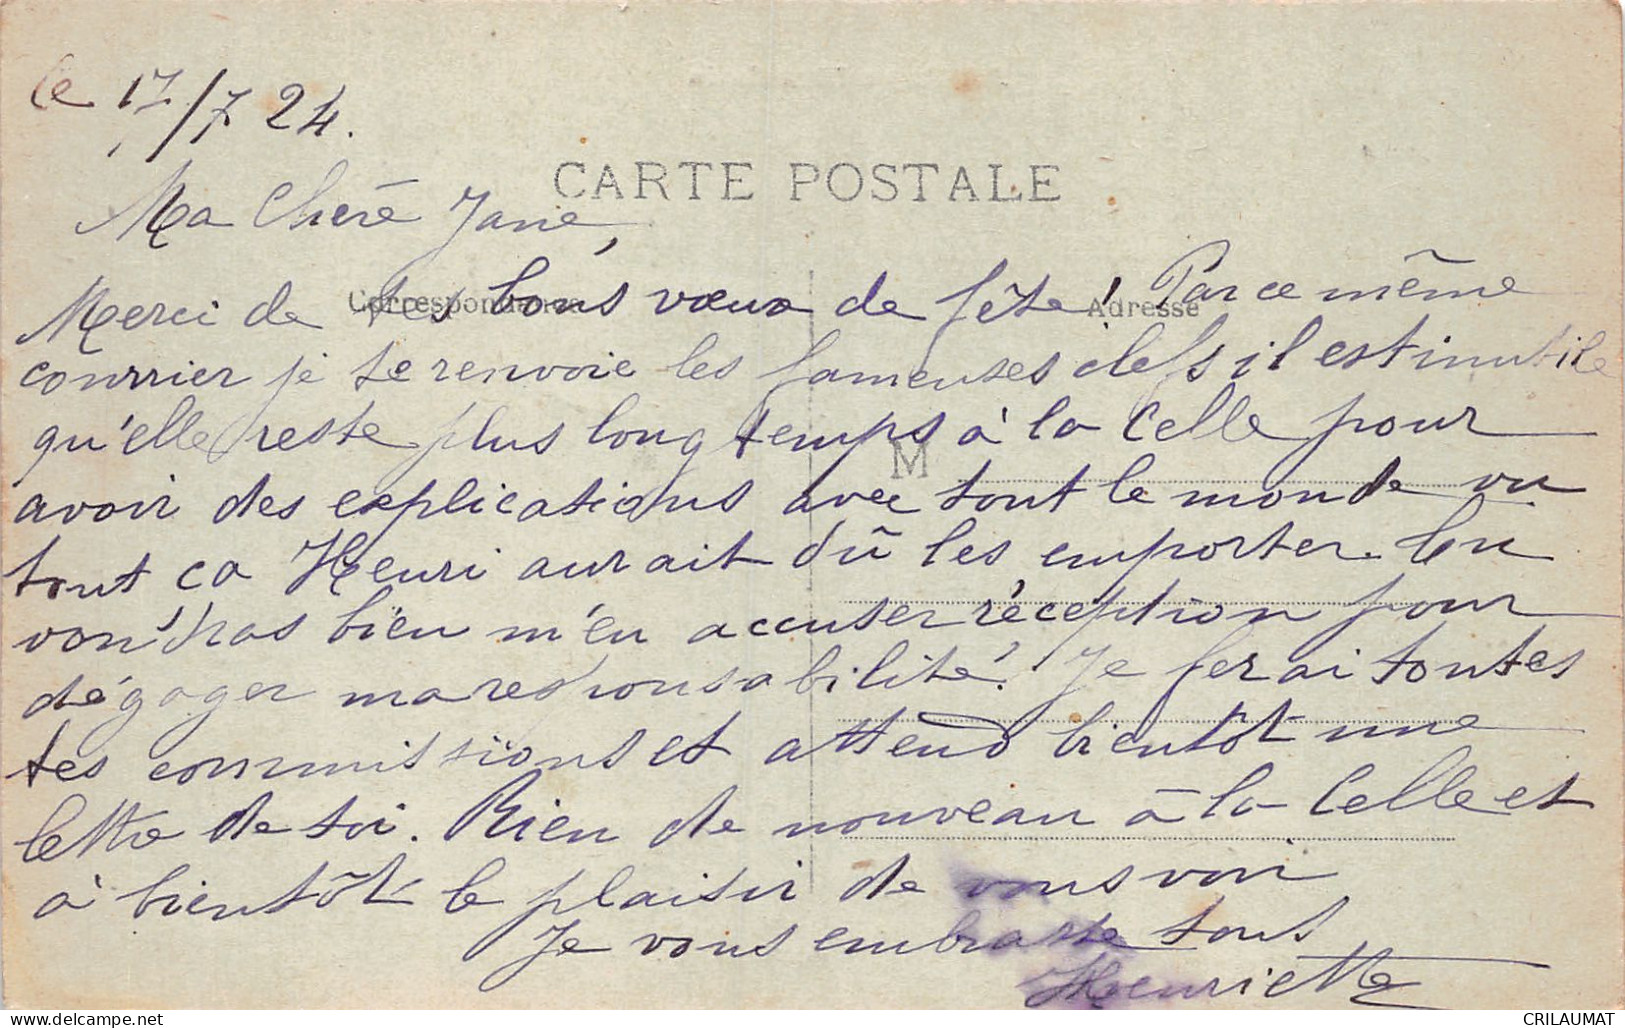 le 17/7 24.
CARTE POSTALE
Ma Chère Jane,
Correspondance
Adresse
Merci de tes bons vœux de fête! Par ce même
courrier je te renvoie les fameuses clefs il est inutile
qu'elle reste plus longtemps à la Celle pour
M
avoir des explications avec tout le monde vu
tout ça Henri aurait dû les emporter. Tu
voudras bien m'en accuser réception pour
dégager ma responsabilité! Je ferai toutes
tes commissions et attend bientôt une
lettre de toi. Rien de nouveau à la Celle et
à bientôt le plaisir de vous voir
Je vous embrasse tous
Henriette
CRILAUMAT